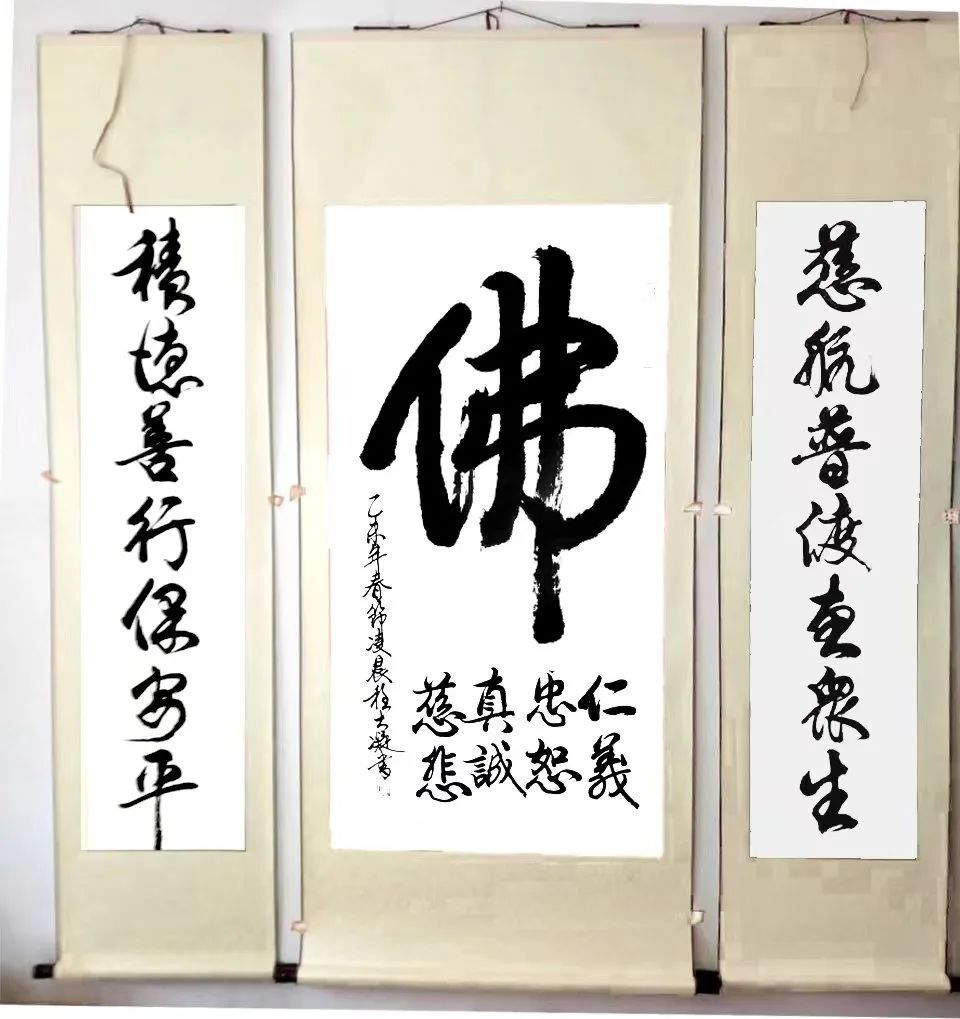 慈航普渡惠衆生
佛
仁義
忠恕
真誠
慈悲
乙未年春節凌晨書
積德善行保安平